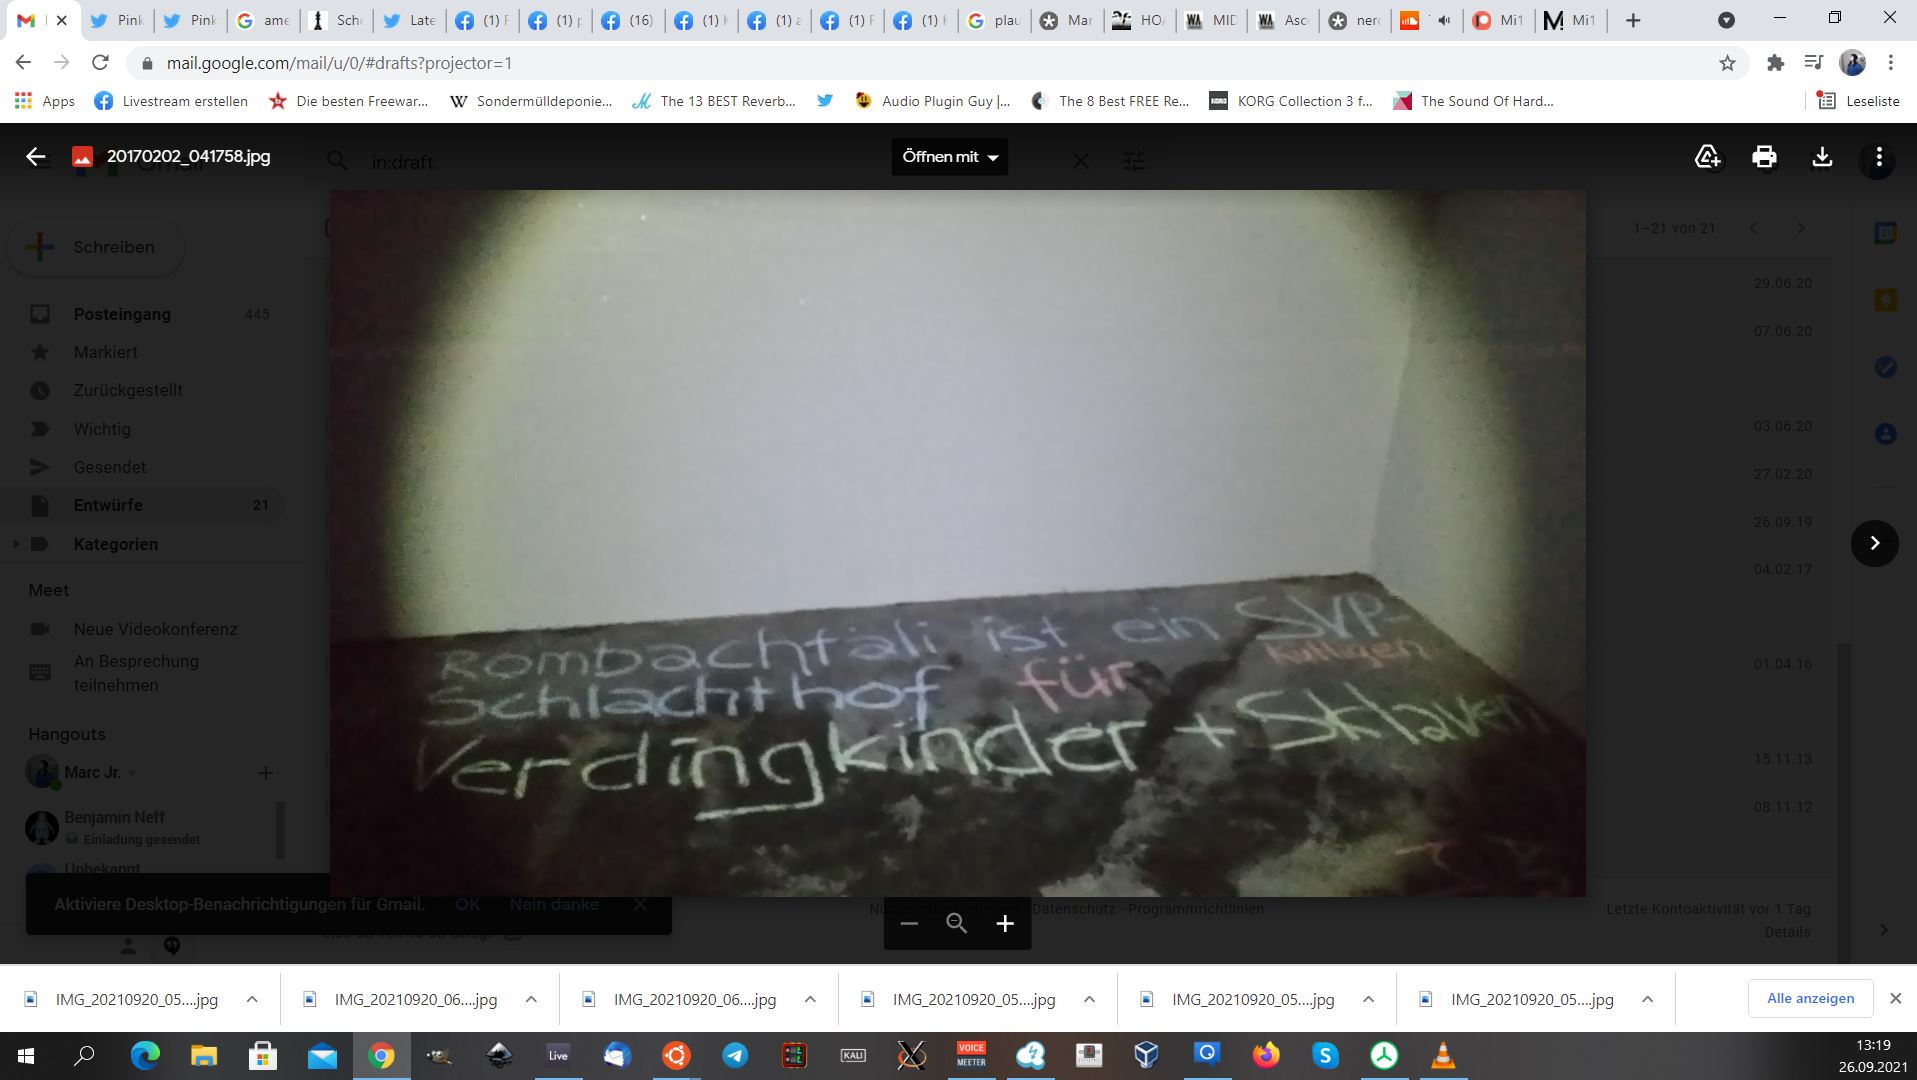 Pink
Pink
ame
Sch
Late
(1) F
(1) p
(16)
(1) K
(1) a
(1) F
(1) K
plau
Mar
HO
MID
Asc
nerd
Mi1
Mi1
mail.google.com/mail/u/0/#drafts?projector=1
Apps
Livestream erstellen
Die besten Freewar...
Sondermülldeponie...
The 13 BEST Reverb...
Audio Plugin Guy |...
The 8 Best FREE Re...
KORG Collection 3 f...
The Sound Of Hard...
Leseliste
20170202_041758.jpg
in:draft
Öffnen mit
Schreiben
1–21 von 21
Posteingang 445
Markiert
Zurückgestellt
Wichtig
Gesendet
Entwürfe 21
Kategorien
Meet
Neue Videokonferenz
An Besprechung
teilnehmen
Hangouts
Marc Jr.
Benjamin Neff
Einladung gesendet
Unbekannt
29.06.20
07.06.20
03.06.20
27.02.20
26.09.19
04.02.17
01.04.16
15.11.13
08.11.12
Rombachtäli ist ein SVP-
Küttigen
Schlachthof für
Verdingkinder + Sklaven
Aktiviere Desktop-Benachrichtigungen für Gmail. OK Nein danke
Datenschutz · Programmrichtlinien
Letzte Kontoaktivität vor 1 Tag
Details
IMG_20210920_05....jpg
IMG_20210920_06....jpg
IMG_20210920_06....jpg
IMG_20210920_05....jpg
IMG_20210920_05....jpg
IMG_20210920_05....jpg
Alle anzeigen
Live
KALI
VOICE
MEETER
13:19
26.09.2021